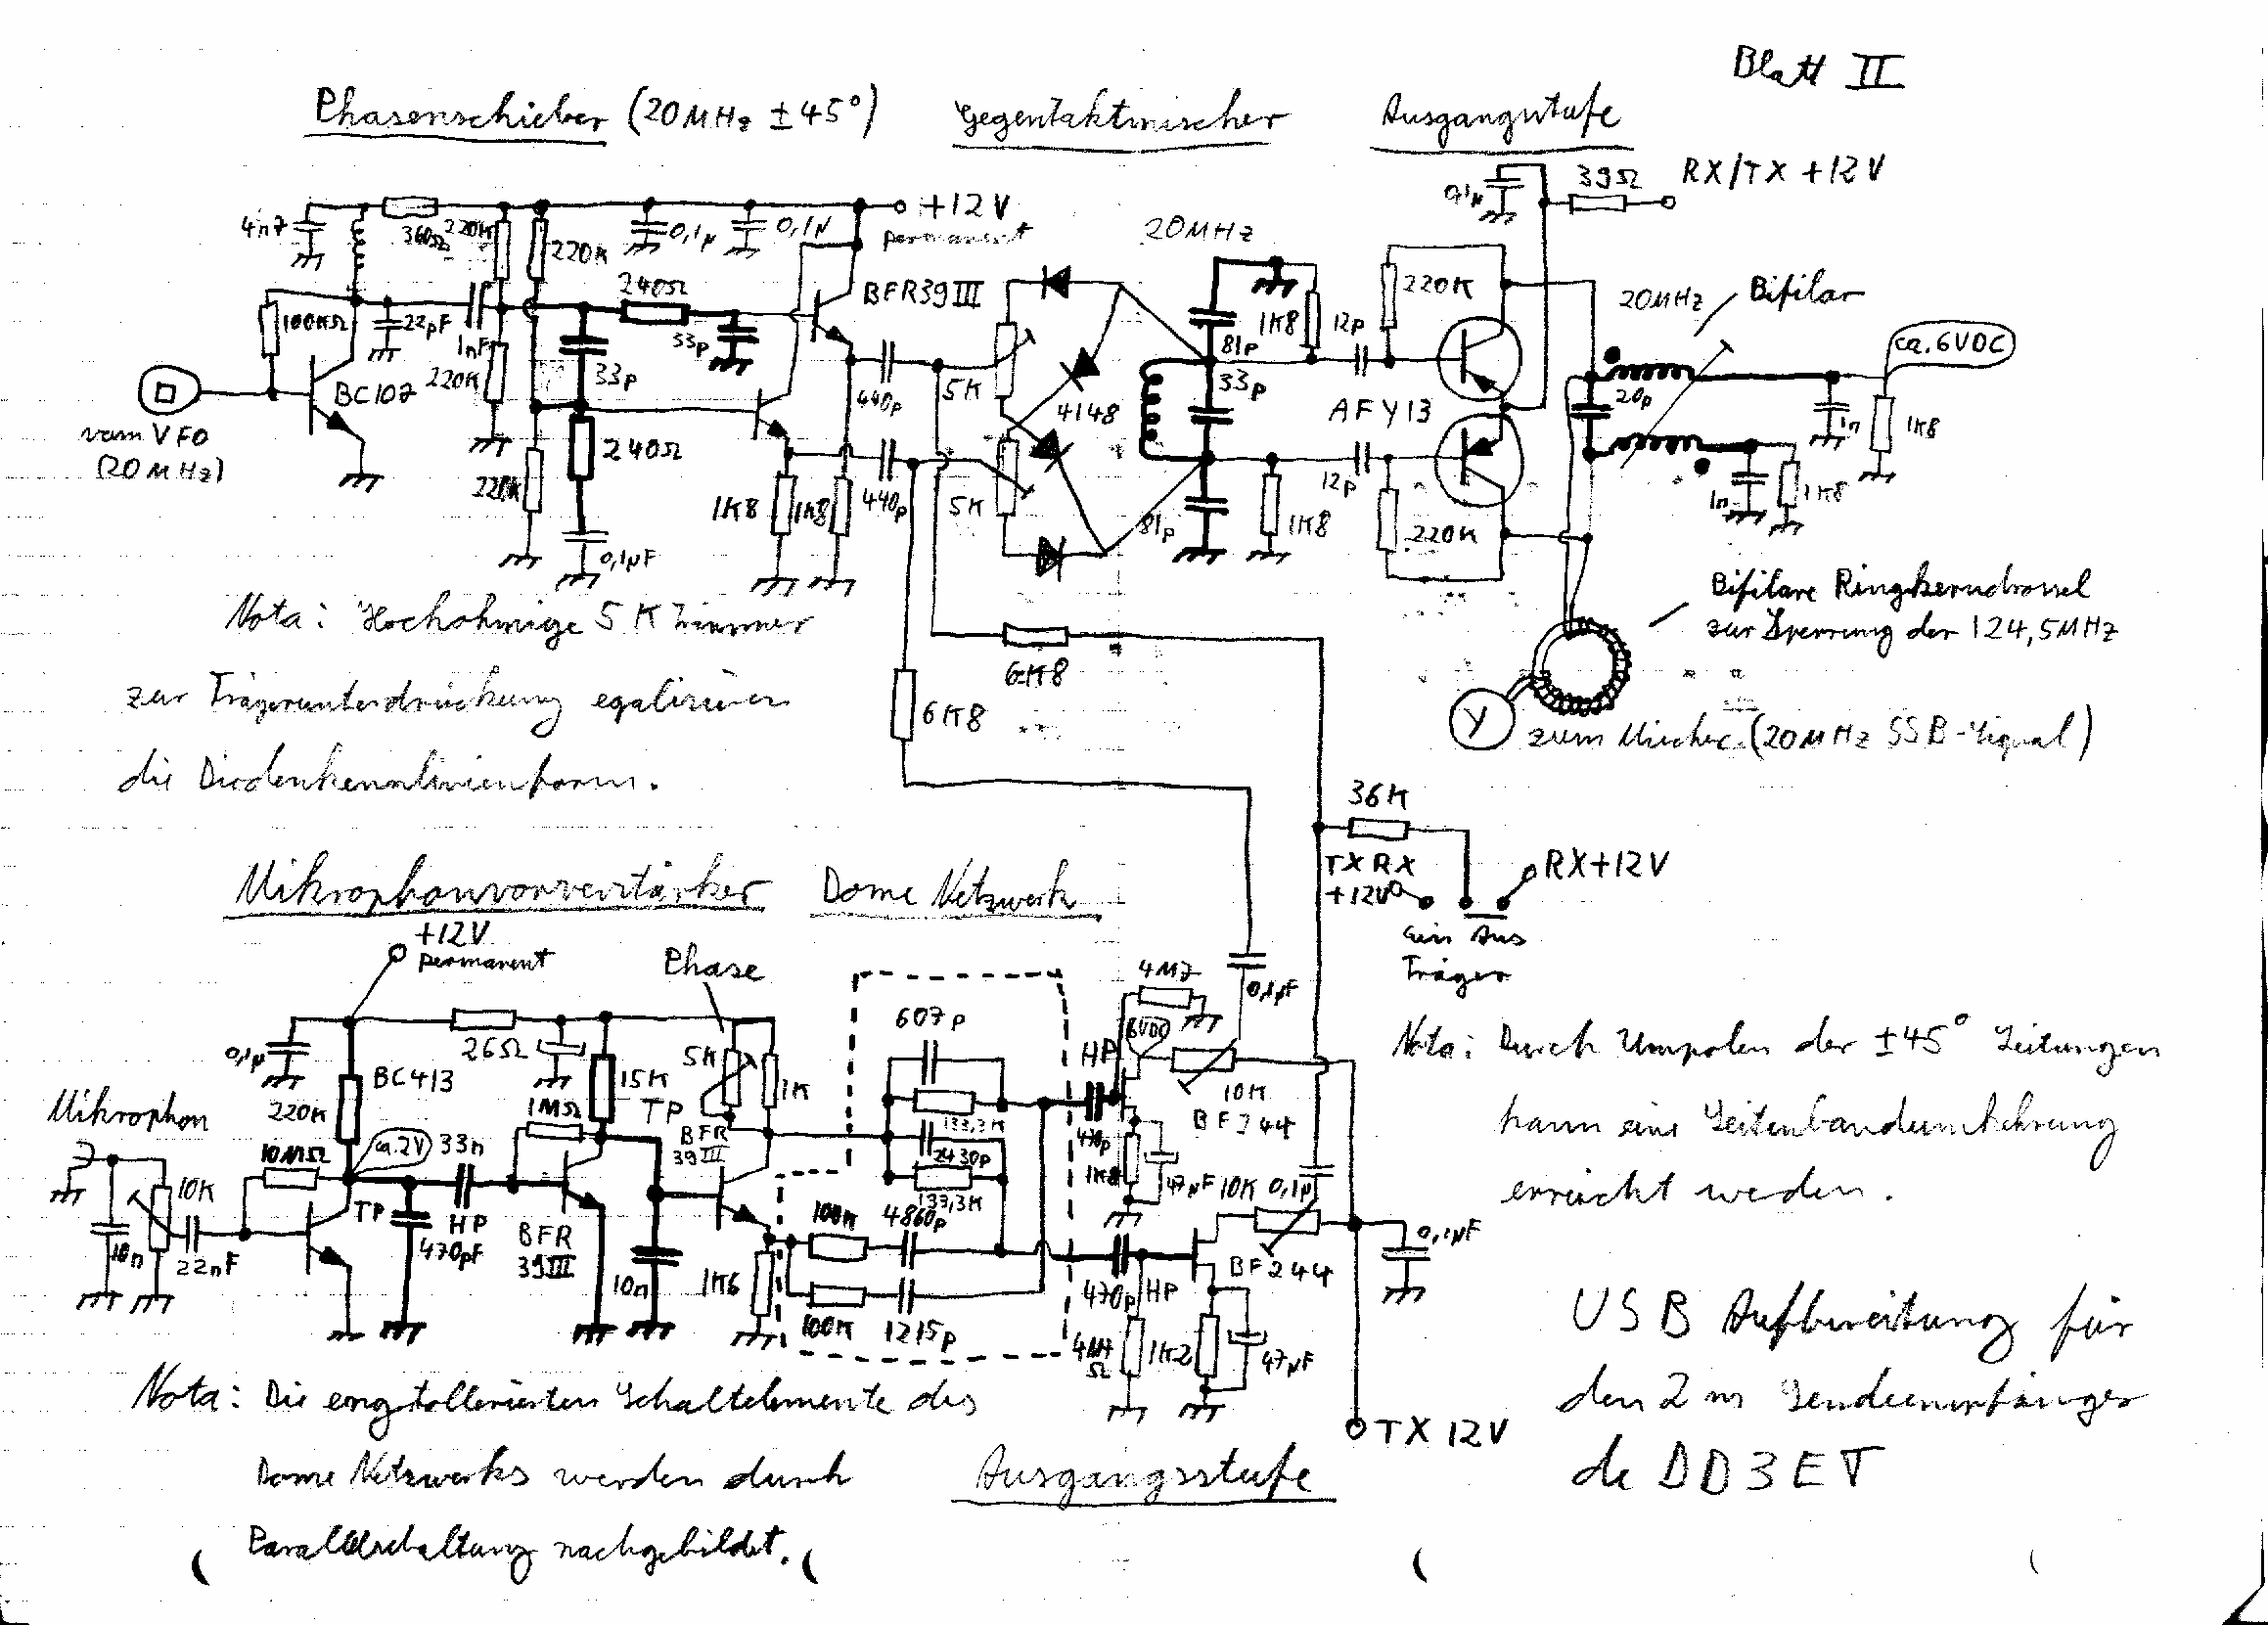 Blatt II
Phasenschieber (20MHz ±45°)
Gegentaktmischer
Ausgangsstufe
RX/TX +12V
39Ω
0,1µ
4n7
360Ω
220K
220K
0,1µ
0,1µ
+12V
permanent
20MHz
240Ω
BFR39III
220K
20MHz
Bifilar
100KΩ
22pF
1nF
33p
1K8
12p
81p
ca. 6VDC
BC107
220K
33p
440p
5K
4148
33p
AFY13
20p
1n
1K8
vom VFO
(20MHz)
240Ω
220K
1K8
1K8
440p
5K
81p
1K8
12p
220K
1n
1K8
0,1µF
Bifilare Ringkerndrossel
zur Sperrung der 124,5MHz
Nota: Hochohmige 5K Trimmer
zur Trägerunterdrückung egalisieren
die Diodenkennlinienform.
6K8
6K8
Y
zum Mischer (20MHz SSB-Signal)
36K
TX RX
+12V
RX+12V
Ein Aus
Träger
Mikrophonvorverstärker
Dome Netzwerk
+12V
permanent
Phase
4M7
0,1µF
607p
6VDC
HP
0,1µ
26Ω
BC413
15K
5K
1K
10K
BF244
Nota: Durch Umpolen der ±45° Leitungen
kann eine Seitenbandumkehrung
erreicht weden.
Mikrophon
220K
1MΩ
TP
133,3K
470p
10MΩ
ca.2V
33n
BFR
39III
2430p
1K8
47µF
10K
0,1µ
10K
TP
HP
133,3K
470pF
BFR
39III
100K
4860p
BF244
0,1µF
10n
22nF
10n
1K6
100K
1215p
470p
HP
4M7
Ω
1K2
47µF
USB Aufbereitung für
den 2m Sendeempfänger
de DD3ET
Nota: Die engtollerierten Schaltelemente des
Dome Netzwerks werden durch
Parallelschaltung nachgebildet.
TX 12V
Ausgangsstufe